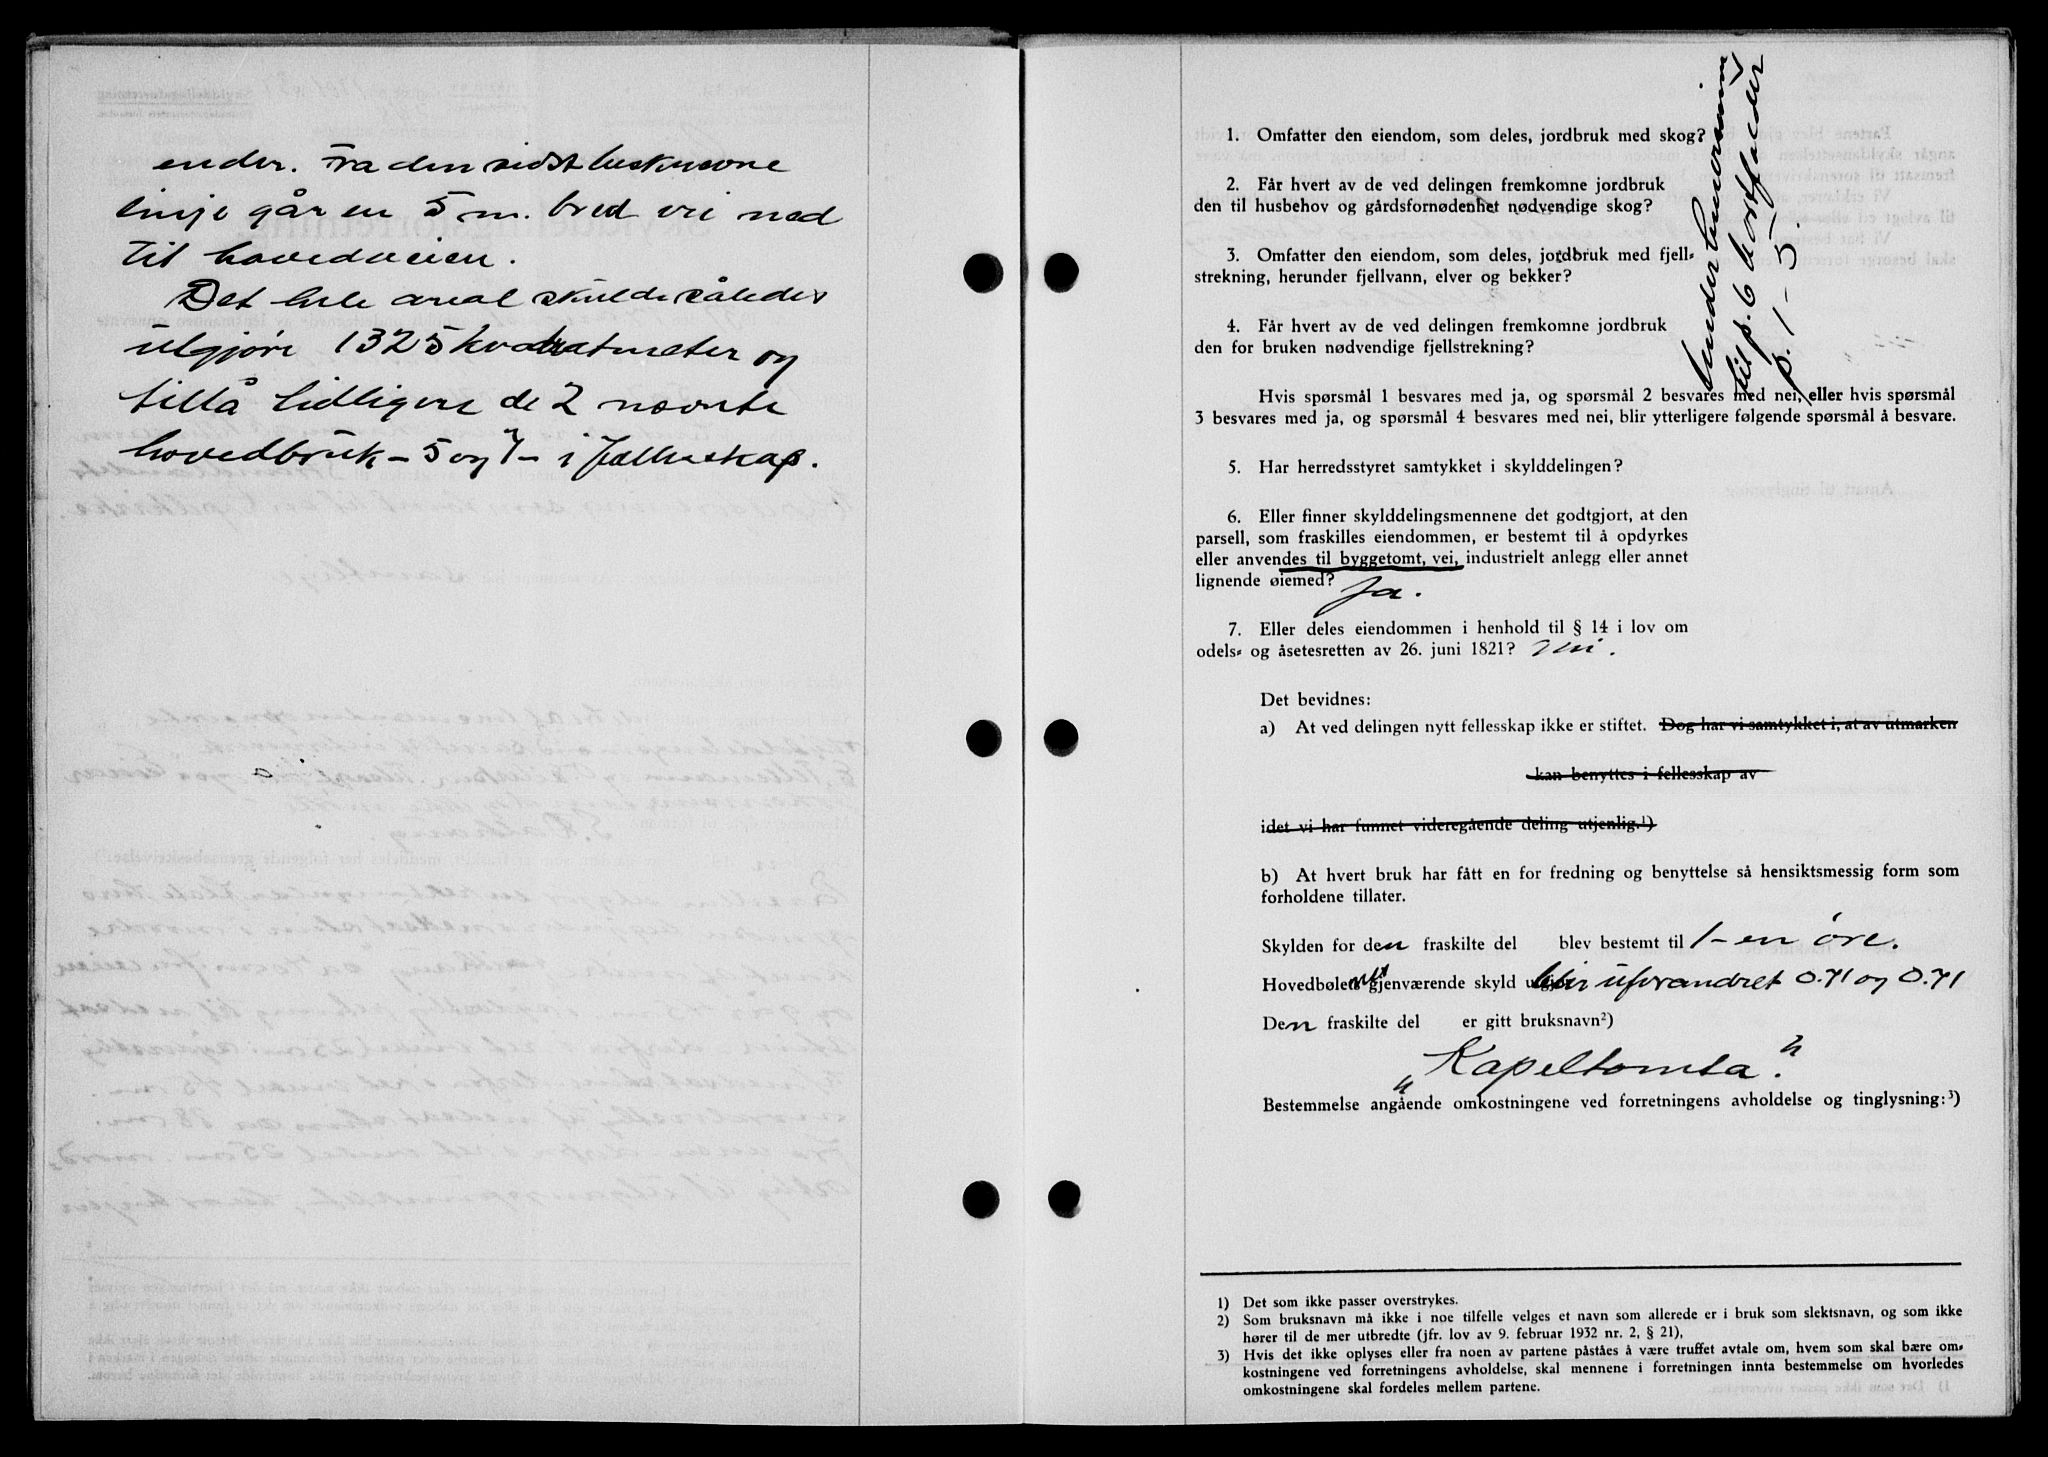 ender. Fra den sidst beskrevne
linje går en 5 m. bred vei ned
til hovedveien.
Det hele areal skulde således
utgjøre 1325 kvadratmeter og
tillå tidligere de 2 nævnte
hovedbruk - 5 og 7 - i fælleskap.
1. Omfatter den eiendom, som deles, jordbruk med skog?
2. Får hvert av de ved delingen fremkomne jordbruk
den til husbehov og gårdsfornødenhet nødvendige skog?
3. Omfatter den eiendom, som deles, jordbruk med fjell-
strekning, herunder fjellvann, elver og bekker?
4. Får hvert av de ved delingen fremkomne jordbruk
den for bruken nødvendige fjellstrekning?
under henvisning
til p. 6 bortfalder
p. 1 - 5.
Hvis spørsmål 1 besvares med ja, og spørsmål 2 besvares med nei, eller hvis spørsmål
3 besvares med ja, og spørsmål 4 besvares med nei, blir ytterligere følgende spørsmål å besvare.
5. Har herredsstyret samtykket i skylddelingen?
6. Eller finner skylddelingsmennene det godtgjort, at den
parsell, som fraskilles eiendommen, er bestemt til å opdyrkes
eller anvendes til byggetomt, vei, industrielt anlegg eller annet
lignende øiemed? Ja.
7. Eller deles eiendommen i henhold til § 14 i lov om
odels- og åsetesretten av 26. juni 1821? Nei.
Det bevidnes:
a) At ved delingen nytt fellesskap ikke er stiftet. Dog har vi samtykket i, at av utmarken
kan benyttes i fellesskap av
idet vi har funnet videregående deling utjenlig.¹)
b) At hvert bruk har fått en for fredning og benyttelse så hensiktsmessig form som
forholdene tillater.
Skylden for den fraskilte del blev bestemt til 1 - en øre.
Hovedbølets gjenværende skyld utgjør blir uforandret 0.71 og 0.71
Den fraskilte del er gitt bruksnavn²)
„Kapeltomta“.
Bestemmelse angående omkostningene ved forretningens avholdelse og tinglysning:³)
1) Det som ikke passer overstrykes.
2) Som bruksnavn må ikke i noe tilfelle velges et navn som allerede er i bruk som slektsnavn, og som ikke
hører til de mer utbredte (jfr. lov av 9. februar 1932 nr. 2, § 21),
3) Hvis det ikke oplyses eller fra noen av partene påståes å være truffet avtale om, hvem som skal bære om-
kostningene ved forretningens avholdelse, skal mennene i forretningen innta bestemmelse om hvorledes
omkostningene skal fordeles mellem partene.